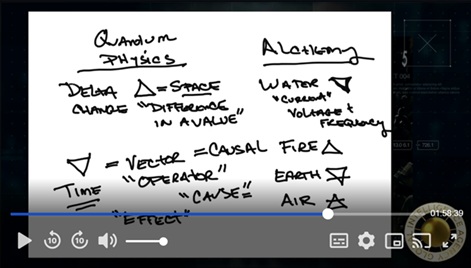 Quantum
Physics
Delta △ = Space
Change "Difference
in a value"
▽ = Vector = Causal
Time "Operator"
"Cause =
"Effect"
Alchemy
Water ▽
"Current"
Voltage +
Frequency
Fire △
Earth
Air
10
10
01:58:39